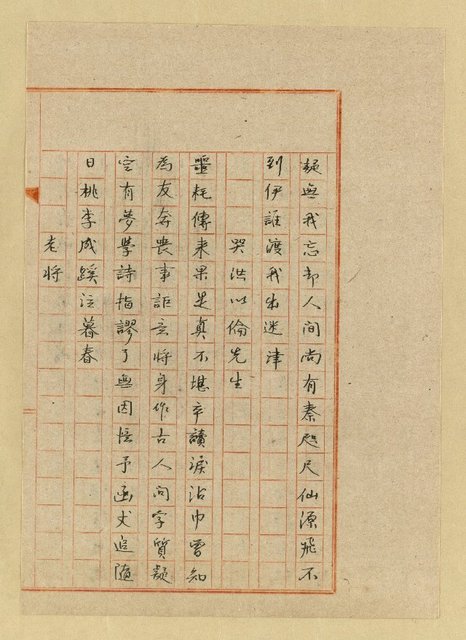 疑無我忘却人間尚有秦咫尺仙源飛不
到伊誰渡我出迷津
哭洪以倫先生
噩耗傳來果是真不堪卒讀淚沾巾曾知
為友奔喪事詎意將身作古人問字質疑
空有夢學詩指謬了無因悵予函丈追隨
日桃李成蹊泣暮春
老將